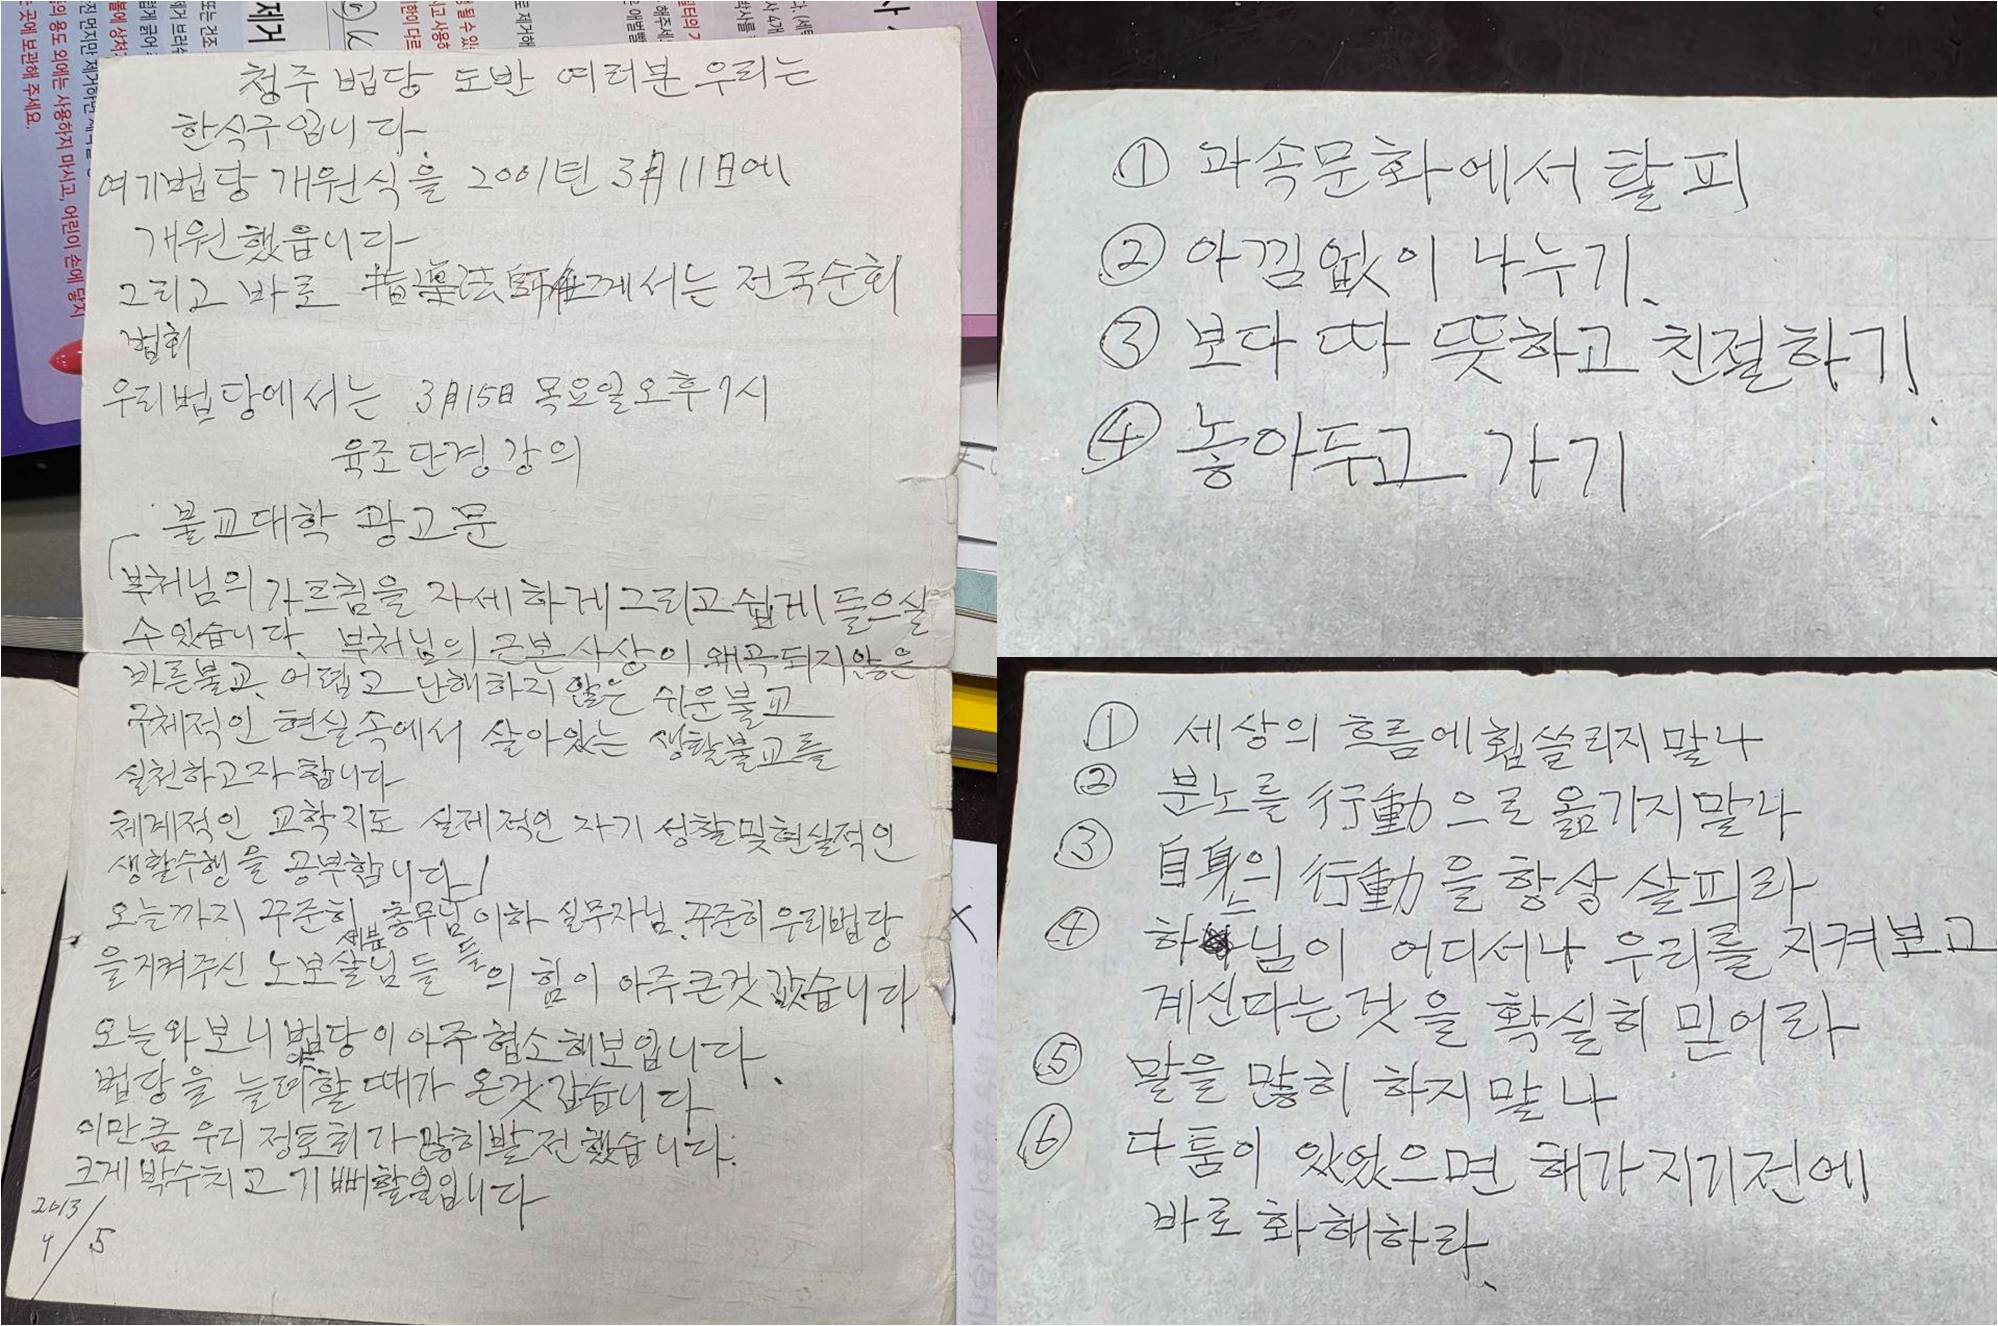 청주 법당 도반 여러분 우리는
한식구입니다.
여기법당 개원식을 2001년 3月11日에
개원했읍니다
그리고 바로 法師께서는 전국순회
법회
우리법당에서는 3月15日 목요일오후7시
육조단경강의
불교대학 광고문
부처님의가르침을 자세하게그리고쉽게 들으실
수있습니다. 부처님의 근본사상이 왜곡되지않은
바른불교. 어렵고 난해하지 않은 쉬운불교
구체적인 현실속에서 살아있는 생활불교를
실천하고자 합니다
체계적인 교학지도 실제적인 자기성찰및현실적인
생활수행을 공부합니다.
오늘까지 꾸준히 총무님이하 실무자님. 꾸준히우리법당
을지켜주신 노보살님들 의 힘이 아주큰것 갔습니다
오늘와보니법당이아주협소해보입니다.
법당을 늘려야할때가 온것 갑습니다
이만큼 우리정토회가 많히발전했습니다.
크게박수치고기뻐할일입니다
2013
4/5
① 과속문화에서탈피
② 아낌없이 나누기.
③ 보다 따뜻하고 친절하기.
④ 놓아두고 가기
① 세상의 흐름에휩쓸리지말나
② 분노를 行動으로 옮기지말나
③ 自身의 行動을 항상 살피라
④ 하느님이 어디서나 우리를 지켜보고
계신다는것을 확실히 믿어라
⑤ 말을 많히 하지말나
⑥ 다툼이 있었으면 해가지기전에
바로 화해하라.
제거